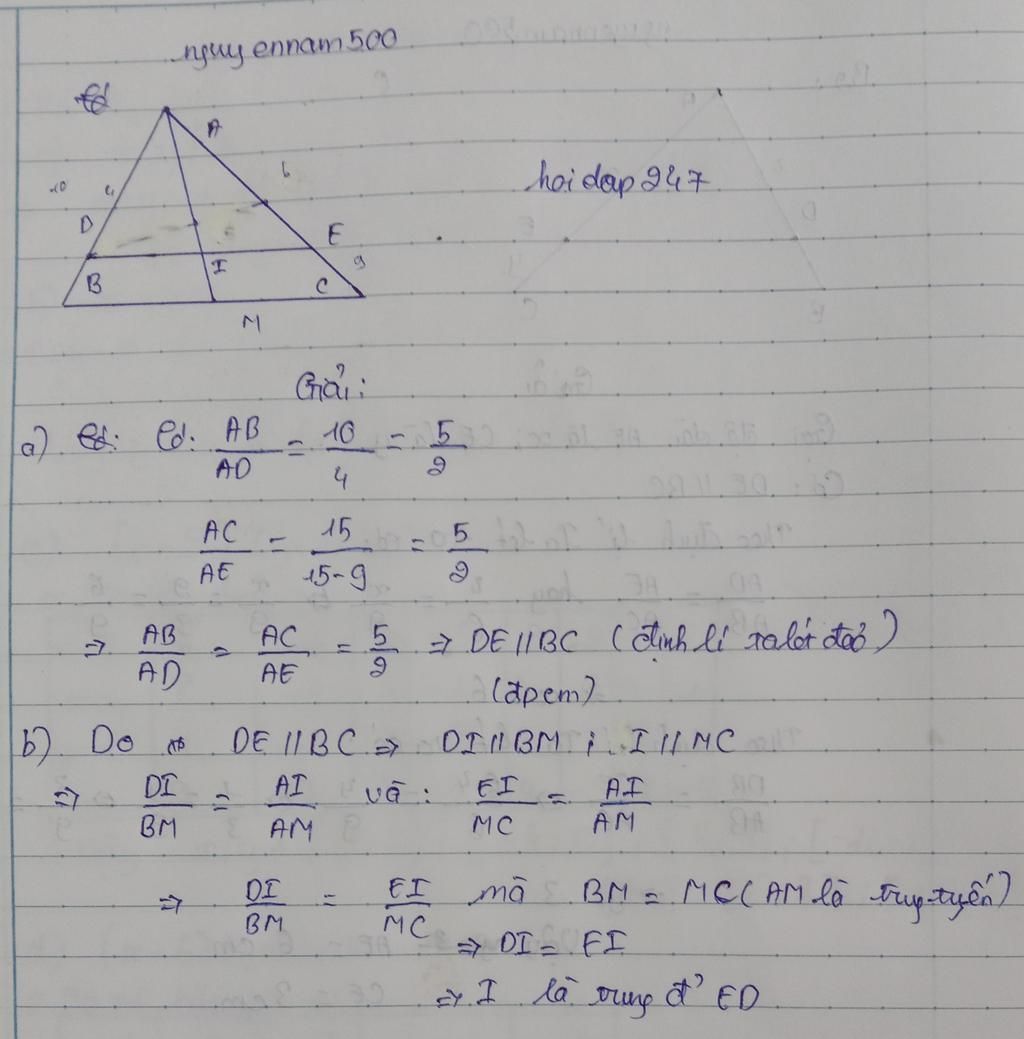 nguyennam500
A
10 4 6
hoidap247
D
E
B I C 9
M
Giải:
a) Có: AB/AD = 10/4 = 5/2
AC/AE = 15/15-9 = 5/2
⇒ AB/AD = AC/AE = 5/2 ⇒ DE//BC (định lí talét đảo)
(đpcm)
b) Do DE//BC ⇒ DI//BM ; I//MC
⇒ DI/BM = AI/AM và: EI/MC = AI/AM
⇒ DI/BM = EI/MC mà BM = MC (AM là trung tuyến)
⇒ DI = EI
⇒ I là trung đ' ED